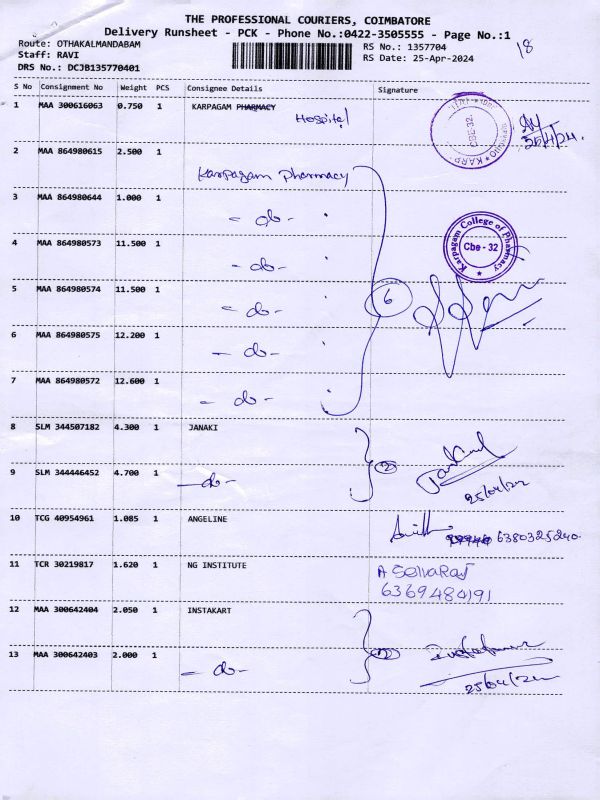 THE PROFESSIONAL COURIERS, COIMBATORE
Delivery Runsheet - PCK - Phone No.:0422-3505555 - Page No.:1
Route: OTHAKALMANDABAM RS No.: 1357704 18
Staff: RAVI RS Date: 25-Apr-2024
DRS No.: DCJB135770401
S No Consignment No Weight PCS Consignee Details Signature
1 MAA 300616063 0.750 1 KARPAGAM PHARMACY
Hospital
2 MAA 864980615 2.500 1
Karpagam Pharmacy
3 MAA 864980644 1.000 1
- do -
4 MAA 864980573 11.500 1
Karpagam College of Pharmacy
Cbe - 32
- do -
5 MAA 864980574 11.500 1
6
- do -
6 MAA 864980575 12.200 1
- do -
7 MAA 864980572 12.600 1
- do -
8 SLM 344507182 4.300 1 JANAKI
2
9 SLM 344446452 4.700 1
- do -
25/04/24
10 TCG 40954961 1.085 1 ANGELINE
6380325240
11 TCR 30219817 1.620 1 NG INSTITUTE
A Selvaraj
6369484191
12 MAA 300642404 2.050 1 INSTAKART
13 MAA 300642403 2.000 1
- do -
25/04/24